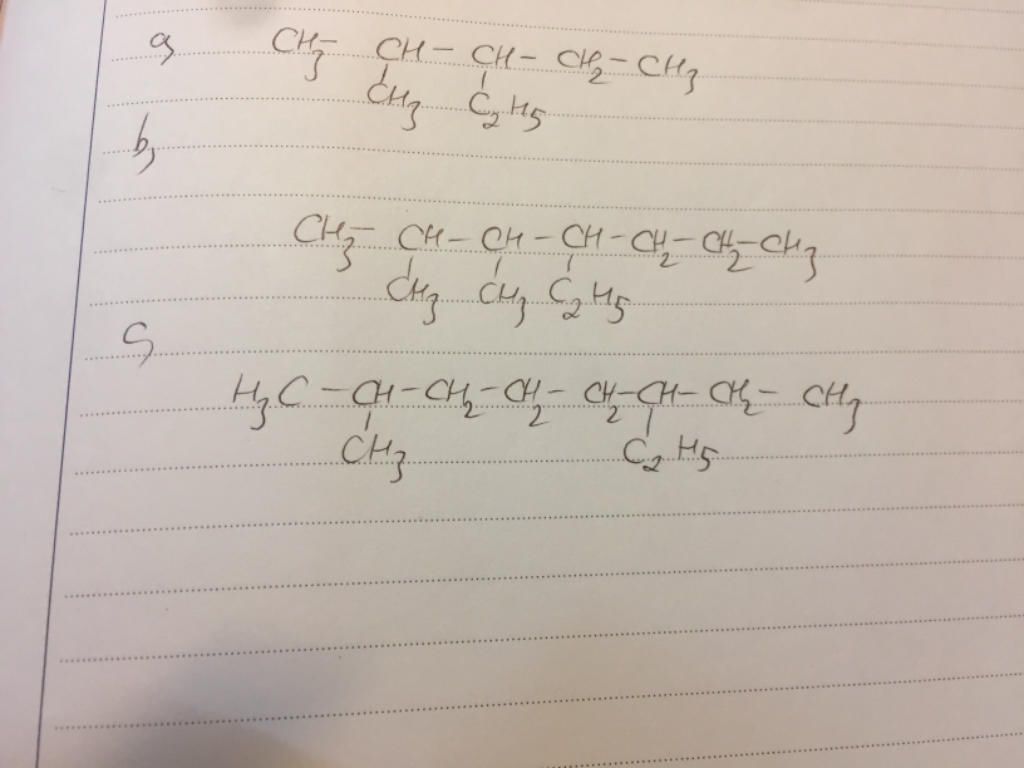 a, CH3- CH - CH - CH2 - CH3
CH3 C2H5
b,
CH3- CH - CH - CH - CH2 - CH2 - CH3
CH3 CH3 C2H5
c,
H3C - CH - CH2 - CH2 - CH2 - CH - CH2 - CH3
CH3 C2H5